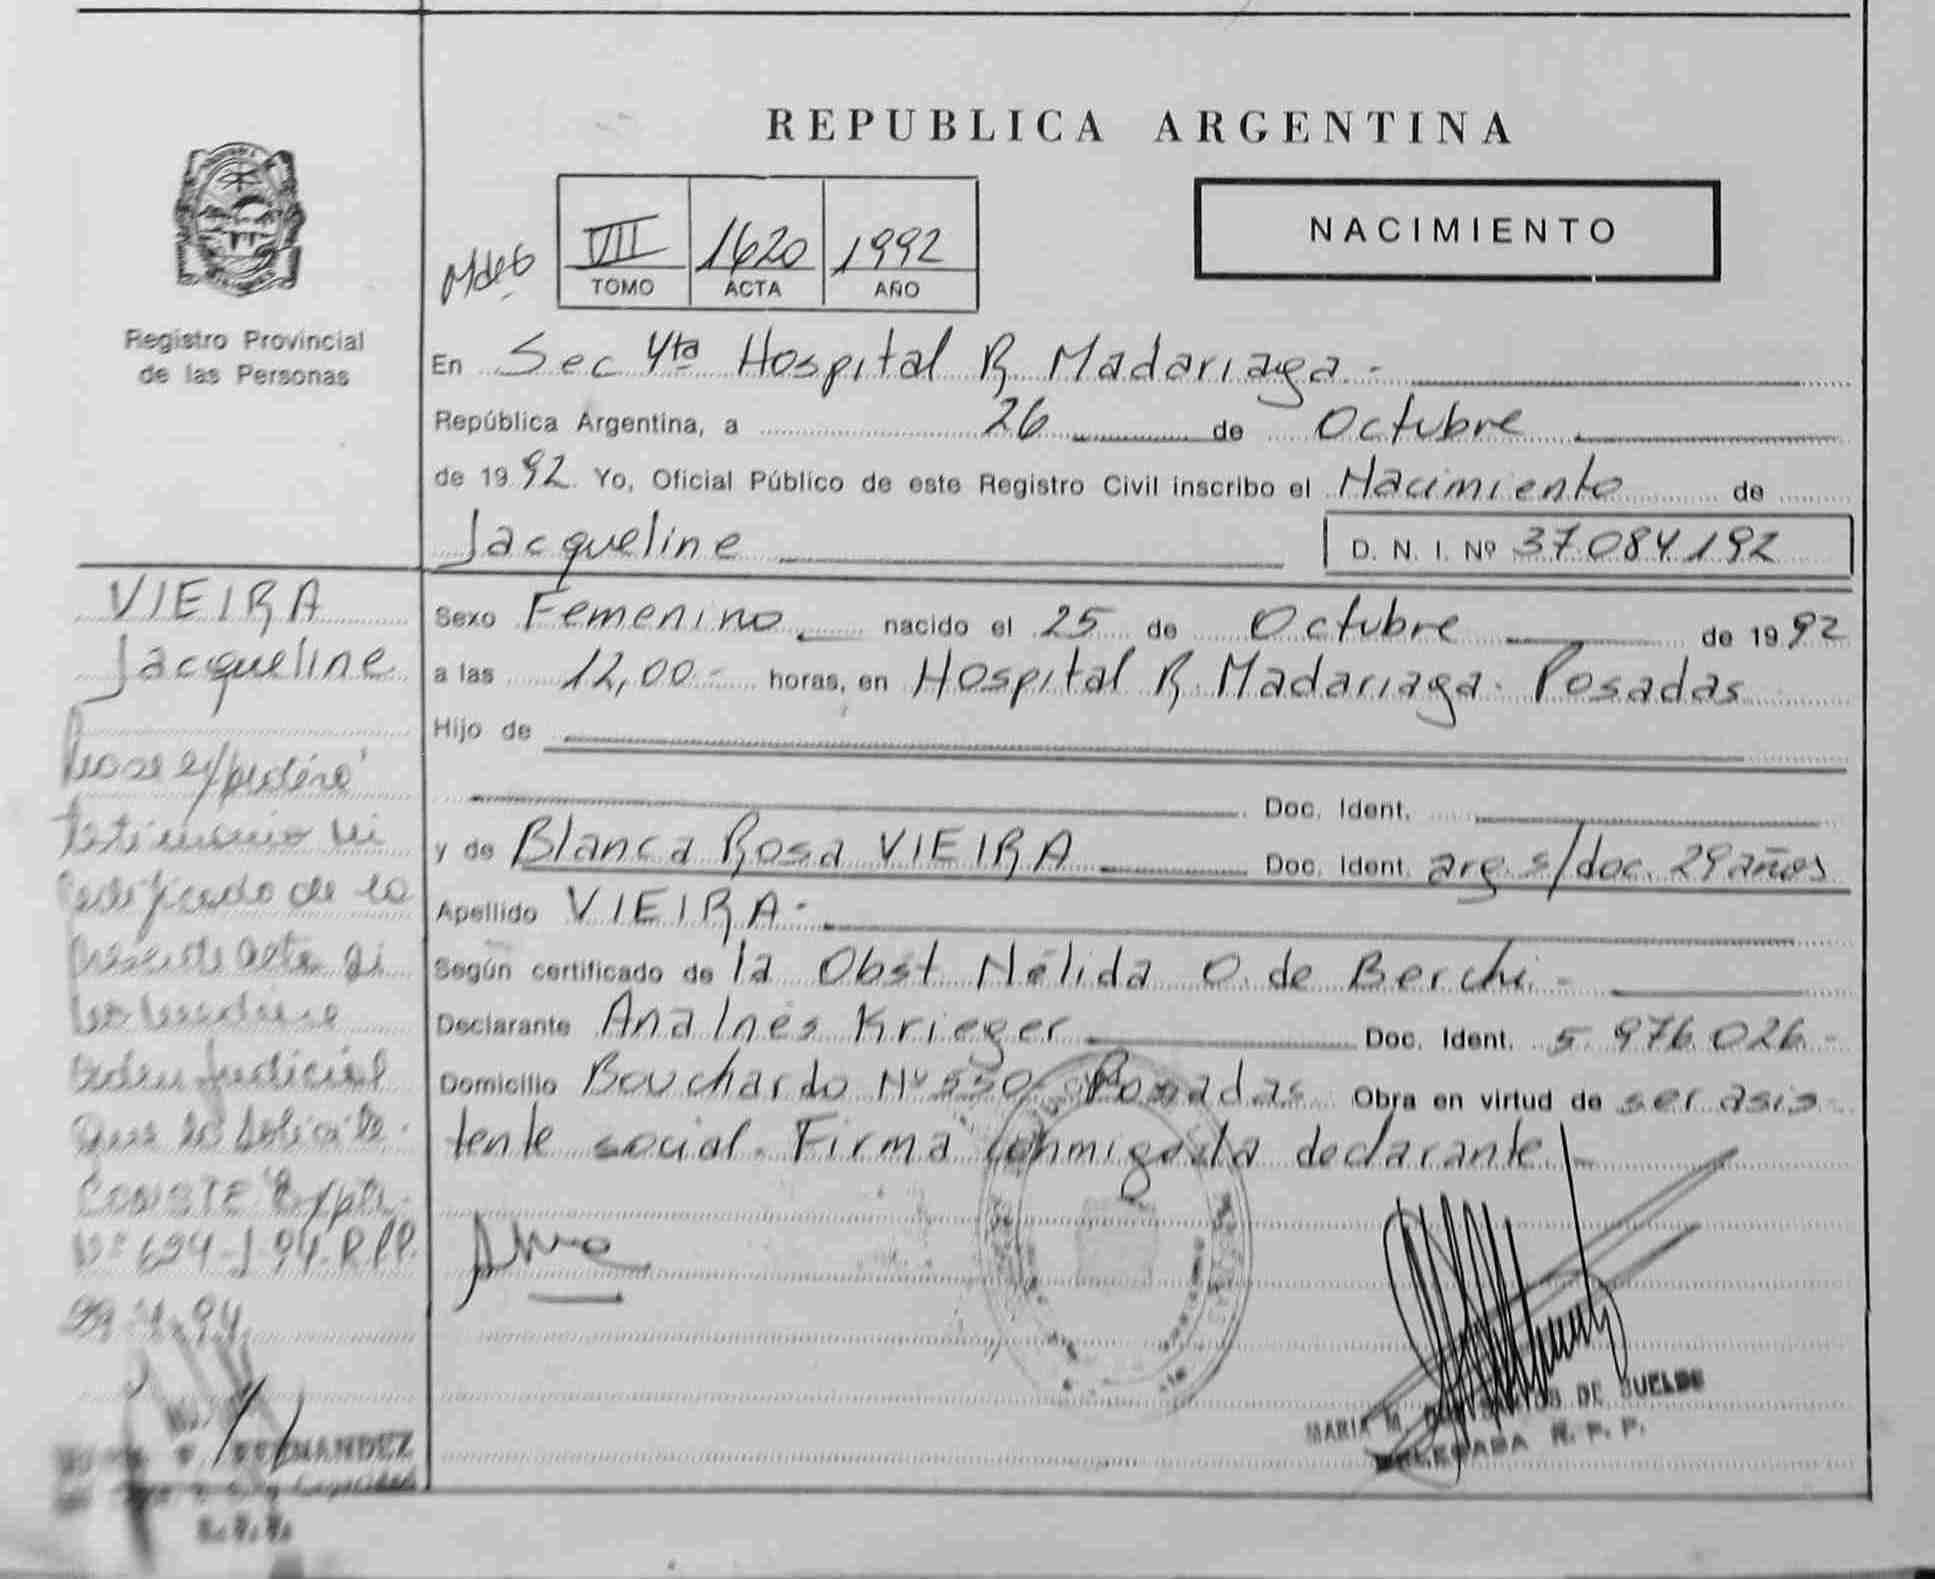 REPUBLICA ARGENTINA
NACIMIENTO
VII 1620 1992
TOMO ACTA AÑO
Registro Provincial
de las Personas
En Sec 4ta Hospital R Madariaga.-
República Argentina, a 26 de Octubre
de 1992. Yo, Oficial Público de este Registro Civil inscribo el Nacimiento de
Jacqueline D. N. I. Nº 37.084.192
Sexo Femenino nacido el 25 de Octubre de 1992
a las 12,00- horas, en Hospital R. Madariaga. Posadas
Hijo de
Doc. Ident.
y de Blanca Rosa VIEIRA Doc. Ident. arg. s/doc. 29 años
Apellido VIEIRA.
Según certificado de la Obst Nélida O. de Berchi.-
Declarante Ana Inés Krieger Doc. Ident. 5.976.026.-
Domicilio Bouchardo Nº 550. Posadas Obra en virtud de ser asis
tente social. Firma conmigo la declarante.-
MARIA M. DE DUELOS
DELEGADA R. P. P.
VIEIRA
Jacqueline
No se expedirá
testimonio ni
certificado de la
presente acta si
no mediare
orden Judicial
que lo solicite.
CONSTE Expte.
Nº 694-J-94-R.P.P.
FERNANDEZ
R.P.P.